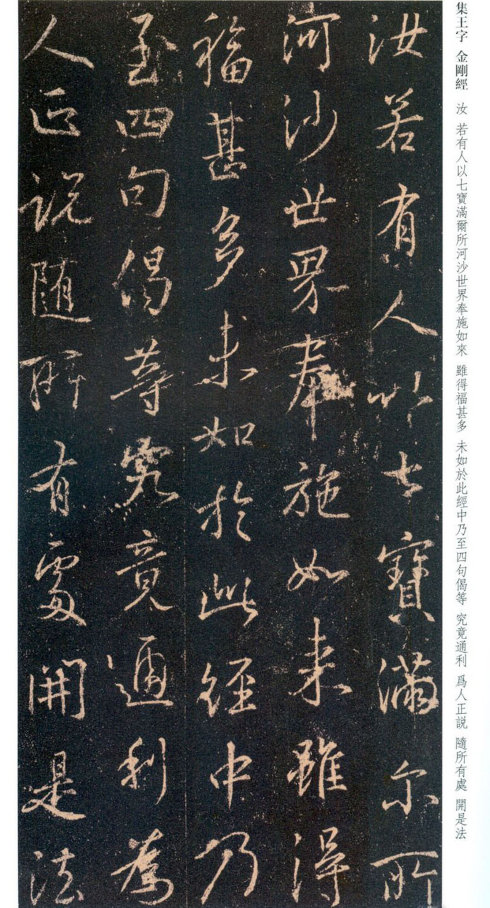 集王字 金剛經 汝 若有人以七寶滿爾所河沙世界奉施如來 雖得福甚多 未如於此經中乃至四句偈等 究竟通利 爲人正説 隨所有處 開是法
汝若有人以七寶滿尔所
河沙世界奉施如来雖得
福甚多未如於此經中乃
至四句偈等究竟通利為
人正説随所有處開是法